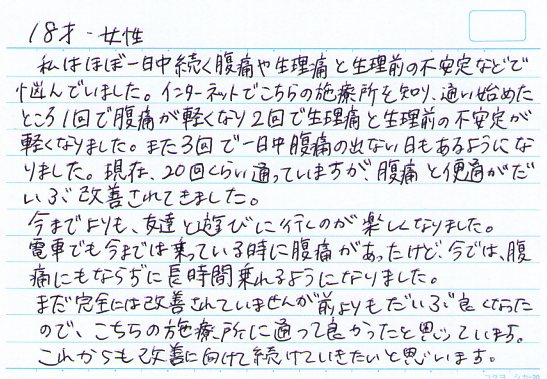 18才・女性
私はほぼ一日中続く腹痛や生理痛と生理前の不安定などで
悩んでいました。インターネットでこちらの施療所を知り、通い始めた
ところ1回で腹痛が軽くなり2回で生理痛と生理前の不安定が
軽くなりました。また3回で一日中腹痛の出ない日もあるようにな
りました。現在、20回くらい通っていますが、腹痛と便通がだ
いぶ改善されてきました。
今までよりも、友達と遊びに行くのが楽しくなりました。
電車でも今までは乗っている時に腹痛があったけど、今では、腹
痛にもならずに長時間乗れるようになりました。
まだ完全には改善されていませんが前よりもだいぶ良くなった
ので、こちらの施療所に通って良かったと思っています。
これからも改善に向けて続けていきたいと思います。